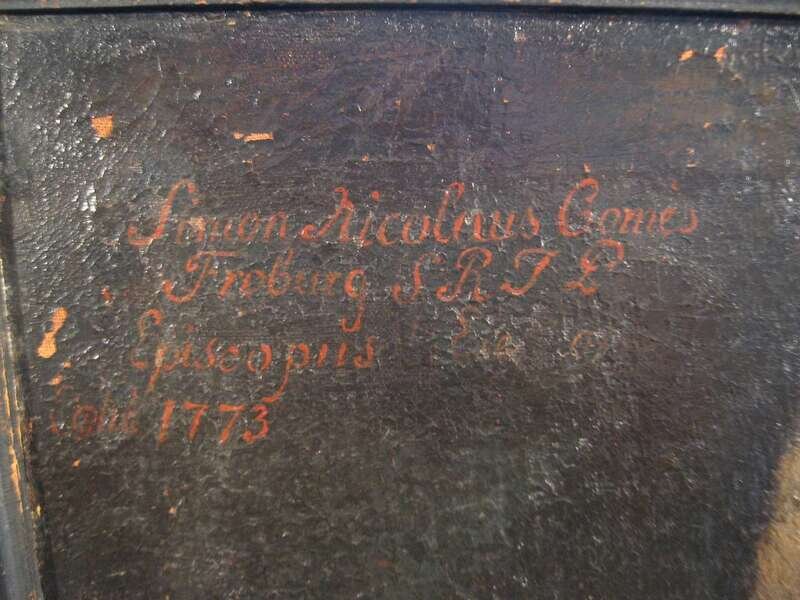 Simon Nicolaus Comes
Froburg S R I P
Episcopus
1773